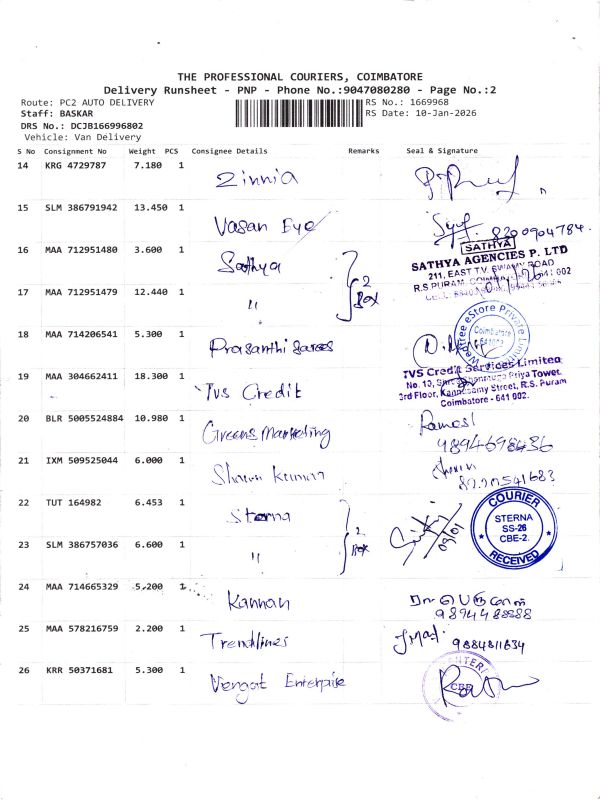 THE PROFESSIONAL COURIERS, COIMBATORE
Delivery Runsheet - PNP - Phone No.:9047080280 - Page No.:2
Route: PC2 AUTO DELIVERY
RS No.: 1669968
Staff: BASKAR
RS Date: 10-Jan-2026
DRS No.: DCJB166996802
Vehicle: Van Delivery
S No Consignment No Weight PCS Consignee Details Remarks Seal & Signature
14 KRG 4729787 7.180 1 Zinnia
15 SLM 386791942 13.450 1 Vasan Eye
8200904784.
16 MAA 712951480 3.600 1 Sathya
2 Box
SATHYA
SATHYA AGENCIES P. LTD
211, EAST T.V. SWAMY ROAD
R.S.PURAM,
17 MAA 712951479 12.440 1 "
18 MAA 714206541 5.300 1 Prasanthi Sarees
Wedtree eStore Private Limited
Coimbatore
641002
19 MAA 304662411 18.300 1 TVS Credit
TVS Credit Services Limited
No. 13, Priya Tower,
3rd Floor, Kannusamy Street, R.S. Puram
Coimbatore - 641 002.
20 BLR 5005524884 10.980 1 Greens Marketing
Ramesh
9894698436
21 IXM 509525044 6.000 1 Sharun Kumar
22 TUT 164982 6.453 1 Sterna
2 Box
COURIER
STERNA
SS-26
CBE-2.
RECEIVED
23 SLM 386757036 6.600 1 "
24 MAA 714665329 5,200 1 Kannan
9894488888
25 MAA 578216759 2.200 1 Trendlines
9884811634
26 KRR 50371681 5.300 1 Vengat Enterprise
CBE